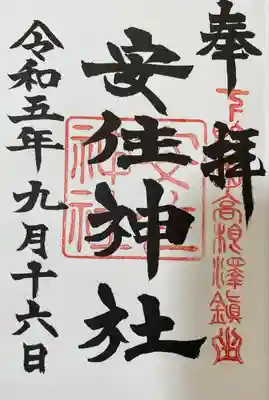 奉拝
下野国高根澤鎮座
安住神社
安住神社
令和五年九月十六日